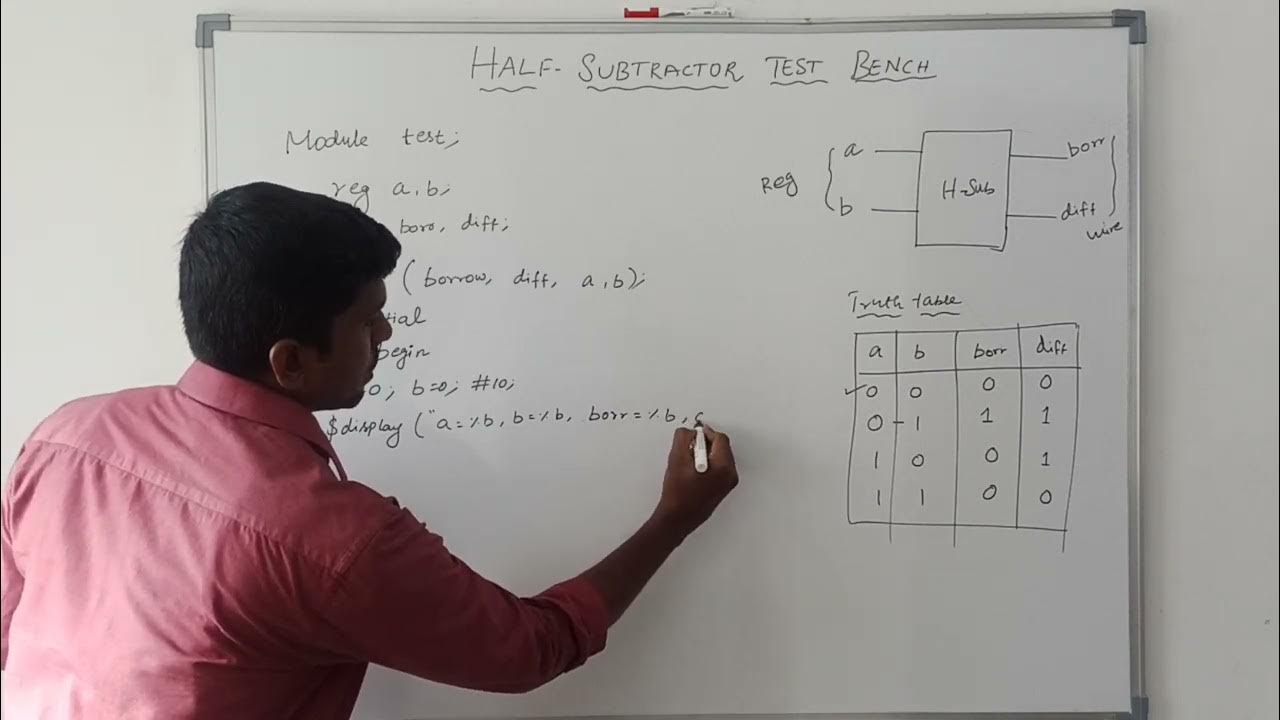 HALF- SUBTRACTOR TEST BENCH
Module test;
reg a,b;
diff;
(borrow, diff, a,b);
tial
begin
0; b=0; #10;
$display ("a=%b, b=%b, borr=%b,
Reg
a
b
H-Sub
borr
diff
wire
Truth table
a b borr diff
0 0 0 0
0 1 1 1
1 0 0 1
1 1 0 0